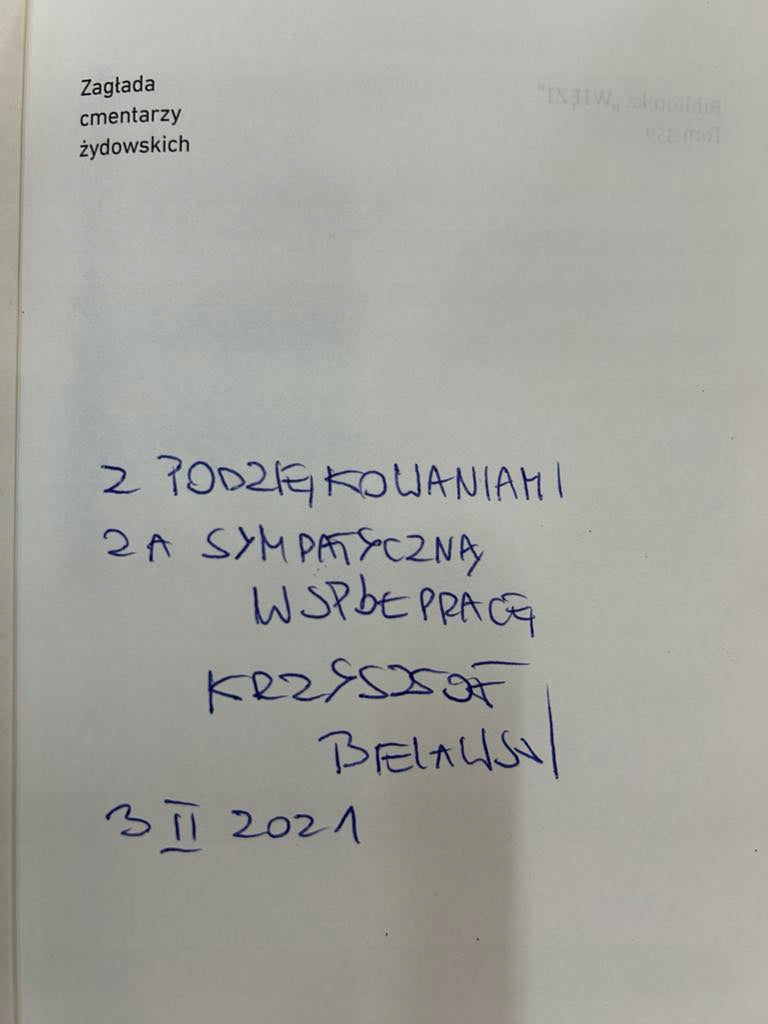 Zagłada
cmentarzy
żydowskich
Biblioteka „WIĘZI”
Tom 359
Z PODZIĘKOWANIAMI
ZA SYMPATYCZNĄ
WSPÓŁPRACĘ
KRZYSZTOF
BIELAWSKI
3 II 2021